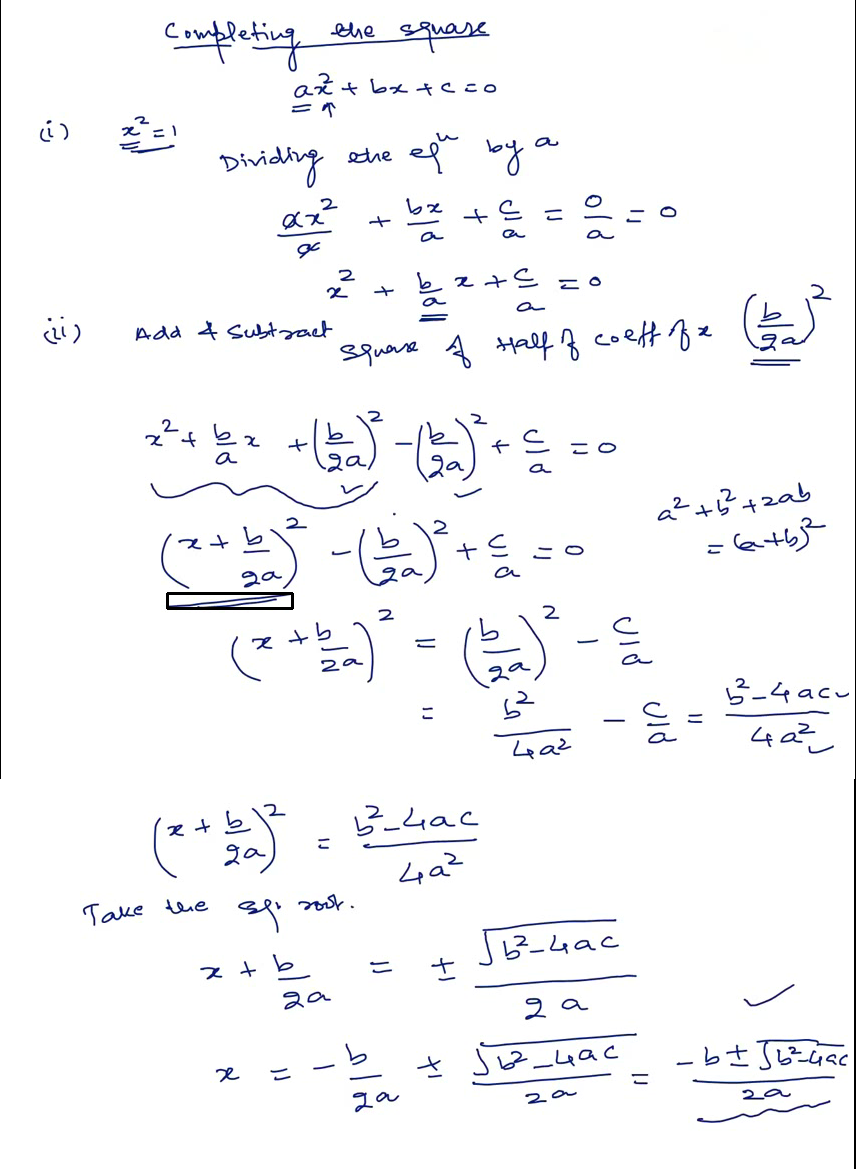 Completing the square
ax² + bx + c = 0
(i) x² = 1
Dividing the eqⁿ by a
ax²/a + bx/a + c/a = 0/a = 0
x² + b/a x + c/a = 0
(ii) Add & Subtract square of Half of coeff of x (b/2a)²
x² + b/a x + (b/2a)² - (b/2a)² + c/a = 0
a² + b² + 2ab
= (a+b)²
(x + b/2a)² - (b/2a)² + c/a = 0
(x + b/2a)² = (b/2a)² - c/a
= b²/4a² - c/a = b²-4ac/4a²
(x + b/2a)² = b²-4ac/4a²
Take the sq. root.
x + b/2a = ± √b²-4ac/2a
x = -b/2a ± √b²-4ac/2a = -b±√b²-4ac/2a